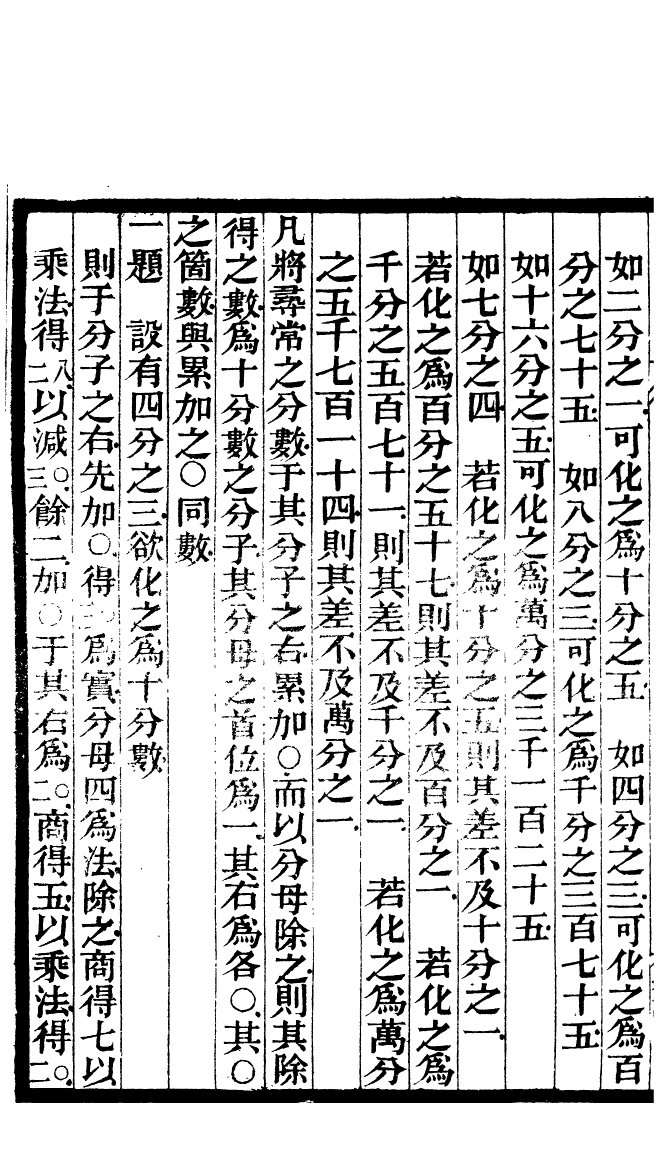 如二分之一可化之爲十分之五　如四分之三可化之爲百
分之七十五　如八分之三可化之爲千分之三百七十五
如十六分之五可化之爲萬分之三千一百二十五
如七分之四　若化之爲十分之五則其差不及十分之一
若化之爲百分之五十七則其差不及百分之一　若化之爲
千分之五百七十一則其差不及千分之一　若化之爲萬分
之五千七百一十四則其差不及萬分之一
凡將尋常之分數于其分子之右累加〇而以分母除之則其除
得之數爲十分數之分子其分母之首位爲一其右爲各〇其〇
之箇數與累加之〇同數
一題　設有四分之三欲化之爲十分數
則于分子之右先加〇得三〇爲實分母四爲法除之商得七以
乘法得二八以減三〇餘二加〇于其右爲二〇商得五以乘法得二〇